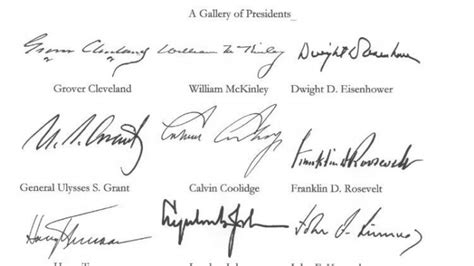 A Gallery of Presidents_
Grover Cleveland William McKinley Dwight D. Eisenhower
Grover Cleveland William McKinley Dwight D. Eisenhower
U. S. Grant Calvin Coolidge Franklin D Roosevelt
General Ulysses S. Grant Calvin Coolidge Franklin D. Rosevelt
Harry Truman Lyndon B. Johnson John F. Kennedy